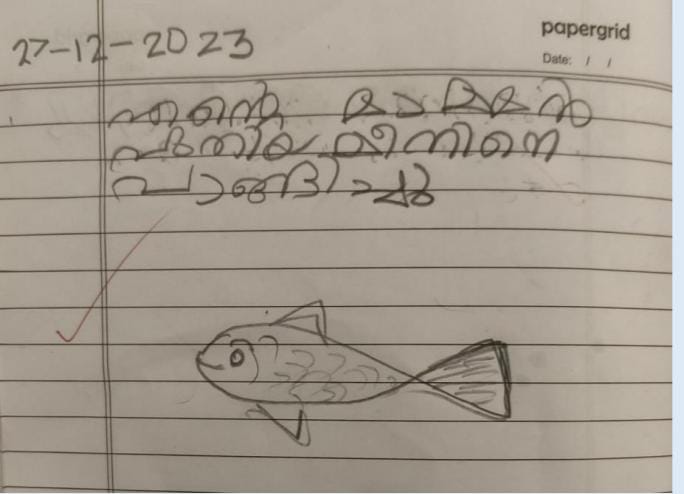 27-12-2023
papergrid
Date: / /
എന്റെ മാമൻ
പുതിയ മീനിനെ
വാങ്ങിച്ചു